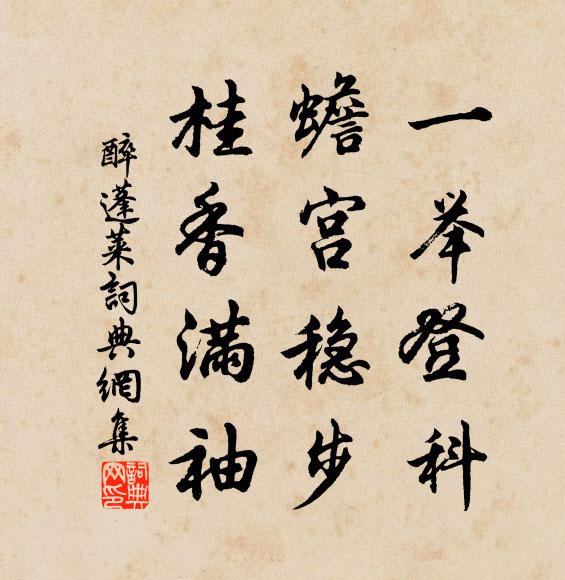 一举登科
蟾宫稳步
桂香满袖
醉蓬莱詞典網集
詞典网印